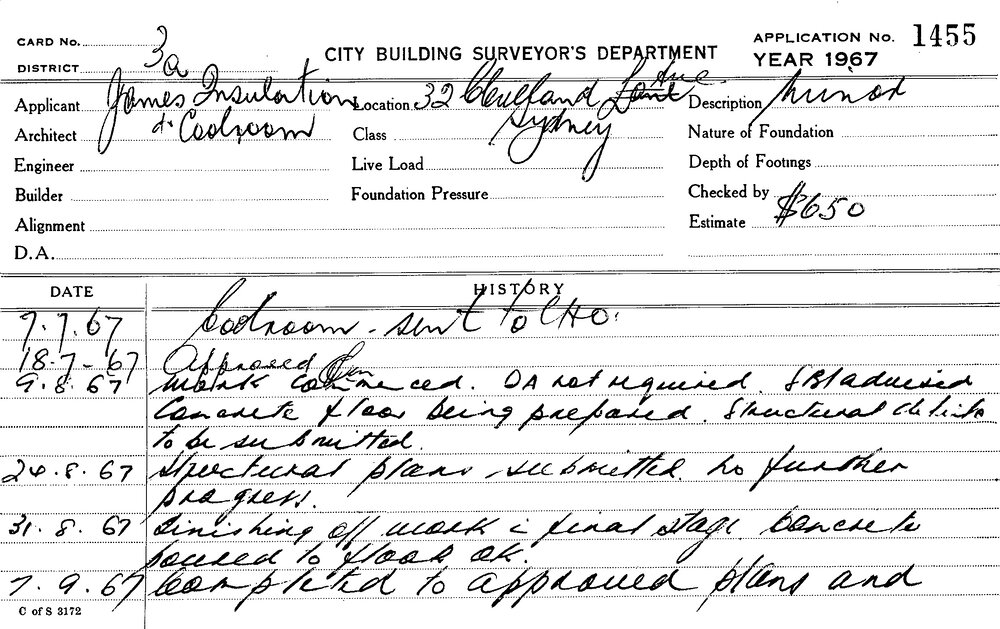 CARD No.
CITY BUILDING SURVEYOR'S DEPARTMENT
APPLICATION No. 1455
DISTRICT 3a
YEAR 1967
Applicant James Insulation
Location 32 Cleveland Ave
Description Minor
Architect & Coolroom
Class Sydney
Nature of Foundation
Engineer
Live Load
Depth of Footings
Builder
Foundation Pressure
Checked by
Alignment
Estimate $650
D.A.
DATE
HISTORY
7.7.67 Coolroom - sent to CHO.
18.7-67 Approved
9.8.67 Work commenced. DA not required. advised
Concrete floor being prepared. Structural details
to be submitted.
24.8.67 Structural plans submitted. No further
progress.
31.8.67 Finishing off work in final stage concrete
poured to floor OK.
7.9.67 Completed to approved plans and
C of S 3172